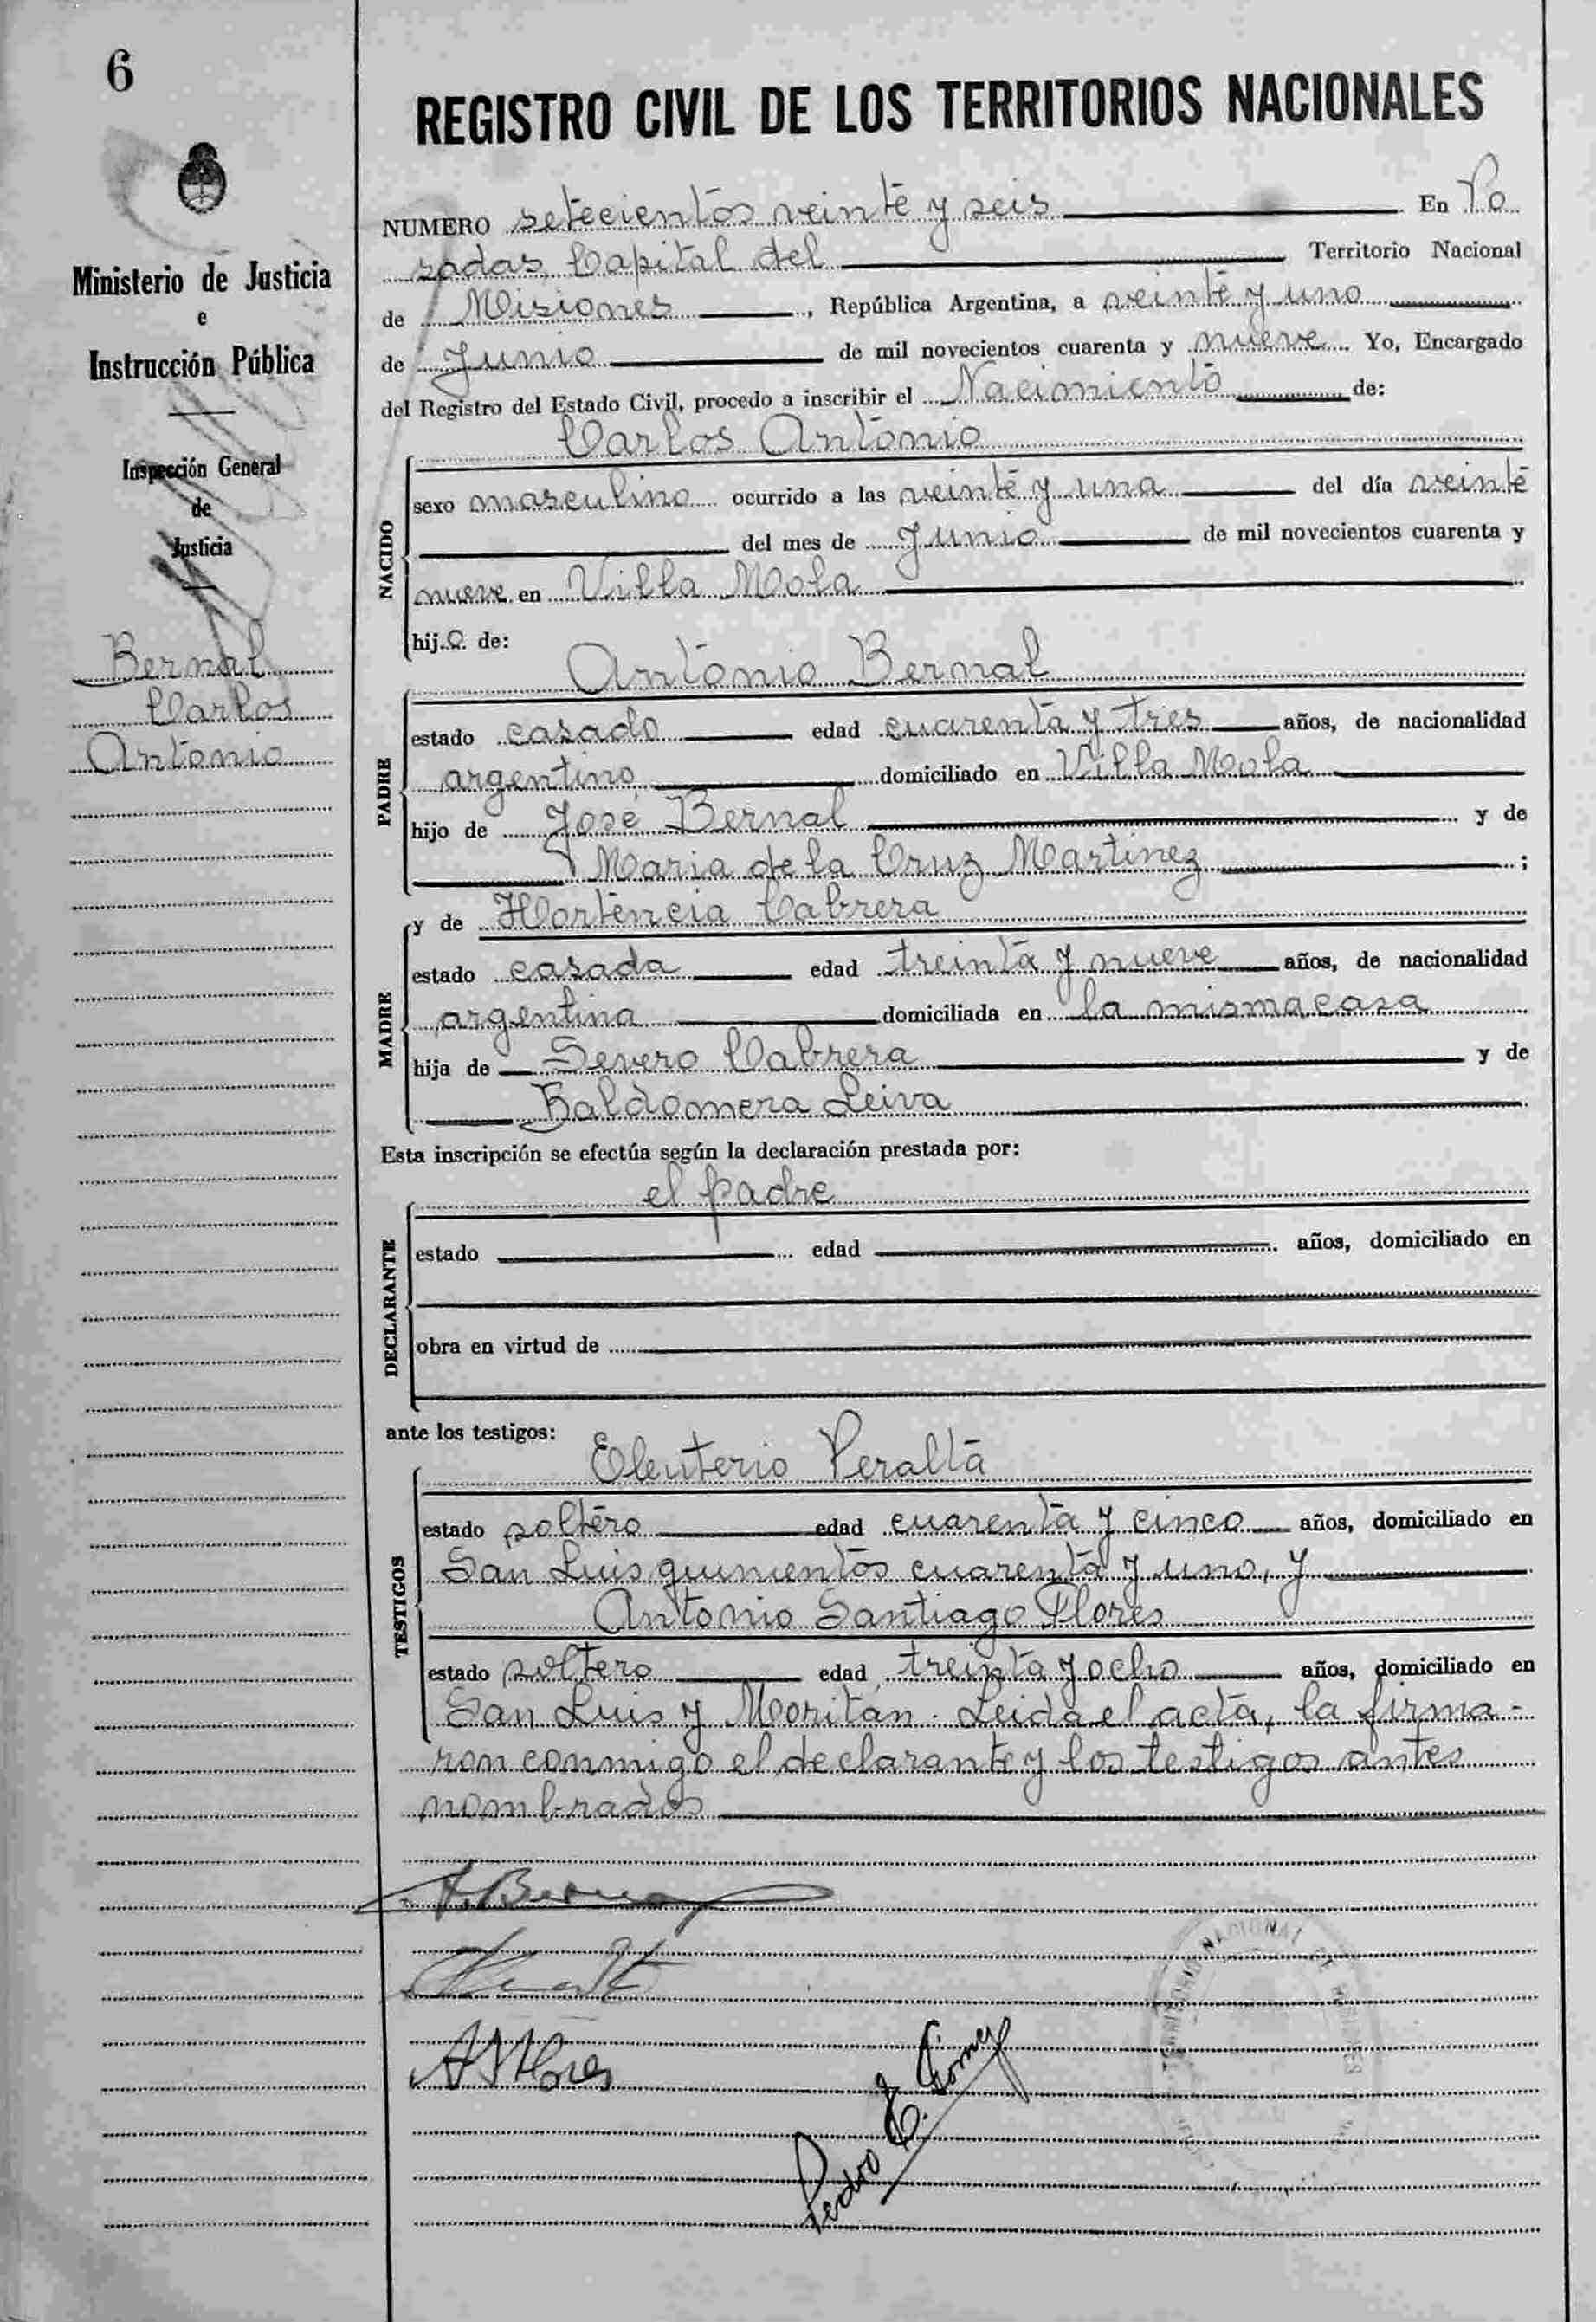 6
REGISTRO CIVIL DE LOS TERRITORIOS NACIONALES
Ministerio de Justicia
e
Instrucción Pública
Inspección General
de
Justicia
Bernal
Carlos
Antonio
NUMERO setecientos veinte y seis En Po
sadas Capital del Territorio Nacional
de Misiones, República Argentina, a veinte y uno
de Junio de mil novecientos cuarenta y nueve. Yo, Encargado
del Registro del Estado Civil, procedo a inscribir el Nacimiento de:
Carlos Antonio
NACIDO
sexo masculino ocurrido a las veinte y una del día veinte
del mes de Junio de mil novecientos cuarenta y
nueve en Villa Mola
hijo de:
Antonio Bernal
PADRE
estado casado edad cuarenta y tres años, de nacionalidad
argentino domiciliado en Villa Mola
hijo de José Bernal y de
Maria de la Cruz Martinez;
y de Hortencia Cabrera
MADRE
estado casada edad treinta y nueve años, de nacionalidad
argentina domiciliada en la misma casa
hija de Severo Cabrera y de
Baldomera Leiva
Esta inscripción se efectúa según la declaración prestada por:
el padre
DECLARANTE
estado edad años, domiciliado en
obra en virtud de
ante los testigos:
Eleuterio Peralta
TESTIGOS
estado soltero edad cuarenta y cinco años, domiciliado en
San Luis quinientos cuarenta y uno, y
Antonio Santiago Flores
estado soltero edad treinta y ocho años, domiciliado en
San Luis y Moritan. Leida el acta, la firma-
ron conmigo el declarante y los testigos antes
nombrados
A. Bernal
A S Flores
Pedro E. Gomez
TERRITORIO NACIONAL DE MISIONES